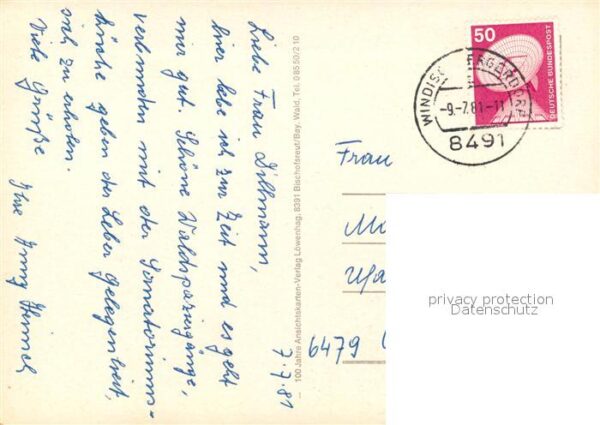 7.7.81
Liebe Frau Dillmann,
hier lebe ich zur Zeit und es geht
mir gut. Schöne Waldspaziergänge,
verbunden mit der Sanatoriums-
küche geben der Leber Gelegenheit,
sich zu erholen.
Viele Grüße
Ihre
100 Jahre Ansichtskarten-Verlag Löwenhag, 8391 Bischofsreut/Bay. Wald, Tel. 08550/210
50
DEUTSCHE BUNDESPOST
-9.-7.81-11
8491
Frau
6479
privacy protection
Datenschutz